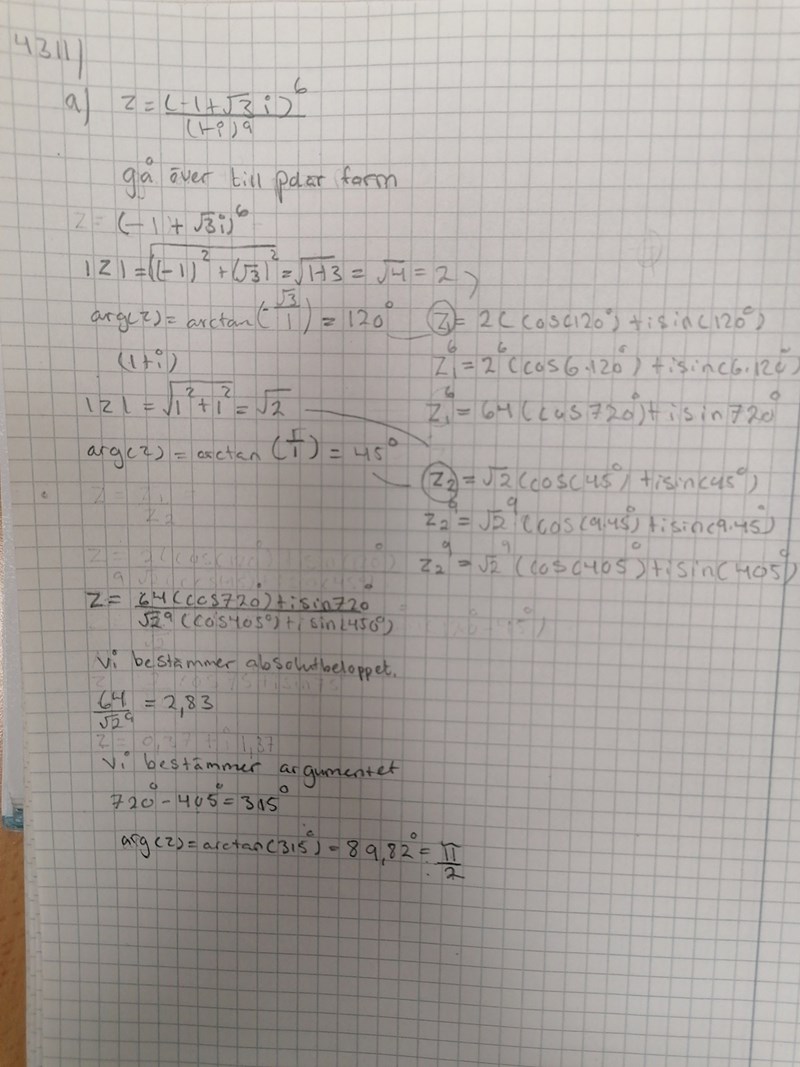 4311)
a) z = (-1+√3 i)^6 / (1+i)^9
gå över till polär form
z = (-1 + √3i)^6
|z| = √((-1)^2 + (√3)^2) = √1+3 = √4 = 2
arg(z) = arctan(-√3/1) = 120°
z₁ = 2(cos(120°) + isin(120°)
(1+i)
z₁^6 = 2^6 (cos6·120°) + isin(6·120°
|z| = √(1^2+1^2) = √2
z₁^6 = 64(cos720°) + isin720°
arg(z) = arctan(1/1) = 45°
z₂ = √2(cos(45°) + isin(45°)
z₂^9 = √2^9 (cos(9·45°) + isin(9·45°)
z₂^9 = √2^9 (cos(405°) + isin(405°)
z = 64(cos720°) + isin720° / √2^9 (cos405°) + isin(450°)
Vi bestämmer absolutbeloppet.
64/√2^9 = 2,83
Vi bestämmer argumentet
720° - 405° = 315°
arg(z) = arctan(315°) = 89,82° = π/2